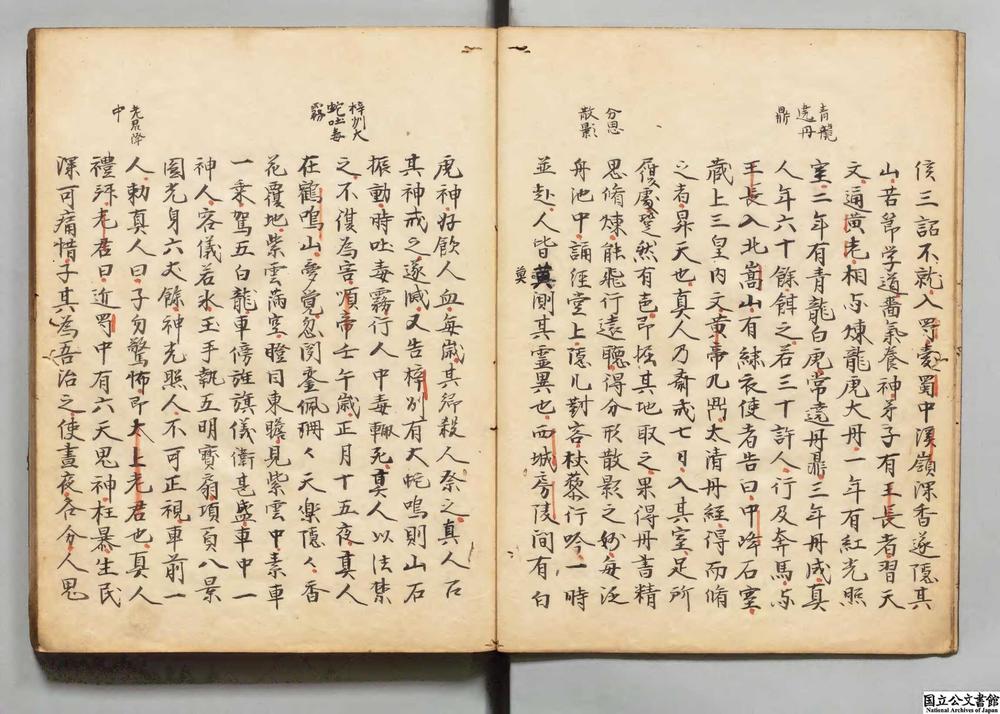 青龍
遶丹
鼎
侯三詔不就入蜀愛蜀中溪嶺深香遂隱其
山苦節学道嗇氣養神弟子有王長者習天
文通黄老相与煉龍虎大丹一年有紅光照
室二年有青龍白虎常遶丹鼎三年丹成真
人年六十餘餌之若三十許人行及奔馬与
王長入北嵩山有繍衣使者告曰中峰石室
蔵上三皇内文黄帝九鼎太清丹經得而脩
之者昇天也真人乃齋戒七日入其室足所
履處跫然有声即掘其地取之果得丹書精
思脩煉能飛行遠聴得分形散影之妙每泛
舟池中誦経堂上隱几對客杖藜行吟一時
並赴人皆莫測其霊異也西城房陵间有白
分思
散影
奠
虎神好飲人血每歳其郷殺人祭之真人召
其神戒之遂滅又告梓州有大蛇鳴則山石
振動時吐毒霧行人中毒輙死真人以法禁
之不復為害順帝壬午歳正月十五夜真人
在鶴鳴山夢覚忽聞鑾佩珊々天楽隠々香
花覆地紫雲満空瞪目東瞻見紫雲中素車
一乗駕五白龍車傍旌旗儀衛甚盛車中一
神人容儀若氷玉手執五明寶扇項負八景
圓光身六丈餘神光照人不可正視車前一
人勅真人曰子勿驚怖即太上老君也真人
禮拜老君曰近蜀中有六天鬼神枉暴生民
深可痛惜子其為吾治之使晝夜各分人鬼
梓州大
蛇吐毒
霧
老君降
中
国立公文書館
National Archives of Japan